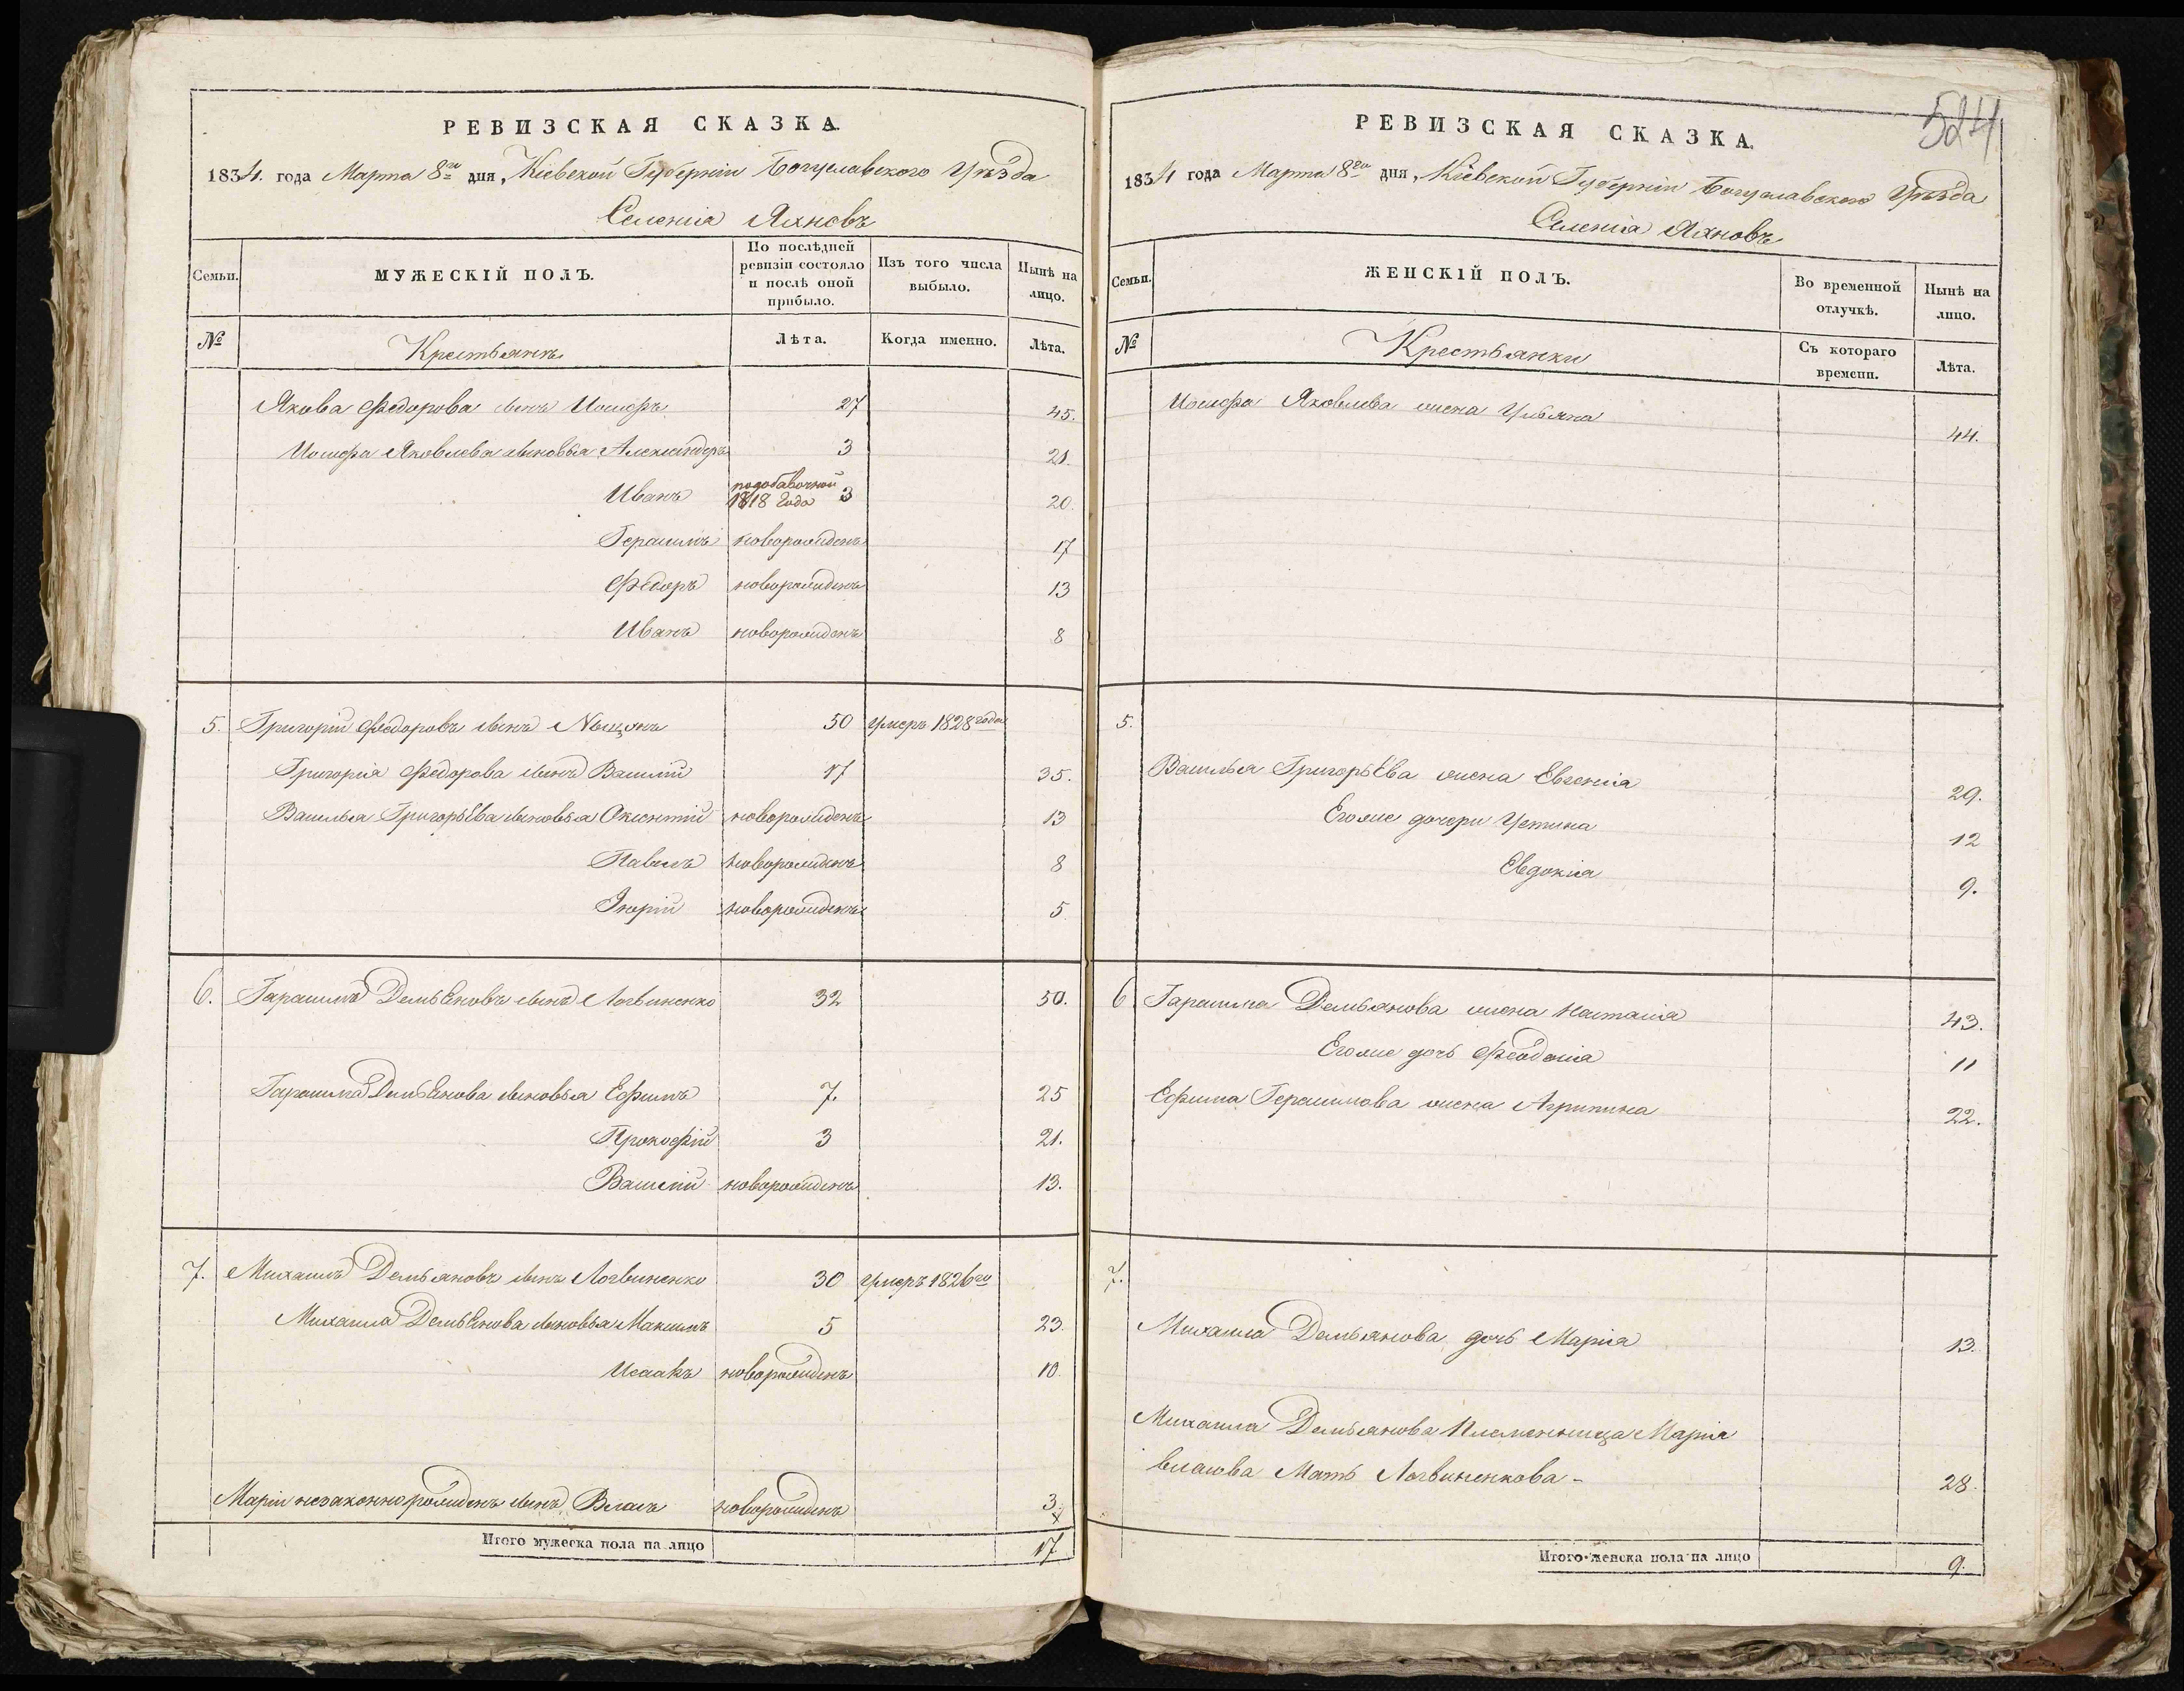 РЕВИЗСКАЯ СКАЗКА.
1834. года Марта 8го дня, Кіевской Губерніи Богуславского Уѣзда
Селенія Яхновъ
Семьи.
МУЖЕСКІЙ ПОЛЪ.
По послѣдней ревизіи состояло и послѣ оной прибыло.
Изъ того числа выбыло.
Нынѣ на лицо.
№
Крестьяне
Лѣта.
Когда именно.
Лѣта.
Якова Федорова сынъ Иосифъ 27 45.
Иосифа Яковлева сыновья Александръ 3 21.
Иванъ подобавочной 1818 года 3 20.
Герасимъ новорожденъ 17
Федоръ новорожденъ 13
Иванъ новорожденъ 8
5. Григорій Федоровъ сынъ 50 умеръ 1828 года
Григорія Федорова сынъ Василій 17 35.
Василья Григорьева сыновья Оксентій новорожденъ 13
Павелъ новорожденъ 8
новорожденъ 5
6. Гарасимъ Демьеновъ сынъ Логвиненко 32 50.
Гарасима Демьенова сыновья Ефимъ 7. 25
Прокофій 3 21.
Василій новорожденъ 13.
7. Михаилъ Демьяновъ сынъ Логвиненко 30 умеръ 1826го
Михаила Демьенова сыновья Максимъ 5 23.
Исаакъ новорожденъ 10.
Маріи незаконно рожденъ сынъ Власъ новорожденъ 3.
Итого мужеска пола на лицо 17.
524
РЕВИЗСКАЯ СКАЗКА.
1834 года Марта 8го дня, Кіевской Губерніи Богуславского Уѣзда
Селенія Яхновъ
Семьи.
ЖЕНСКІЙ ПОЛЪ.
Во временной отлучкѣ.
Нынѣ на лицо.
№
Крестьянки
Съ котораго времени.
Лѣта.
Иосифа Яковлева жена Ульяна 44.
5.
Василья Григорьева жена Евгенія 29.
Егоже дочери Устина 12
Евдокія 9.
6 Гарасима Демьянова жена Настасія 43.
Егоже дочь Феодосія 11
Ефима Герасимова жена Агрипина 22.
7.
Михаила Демьянова дочь Марія 13.
Михаила Демьянова Племенница Марія
власова Мать Логвиненкова - 28.
Итого женска пола на лицо 9.